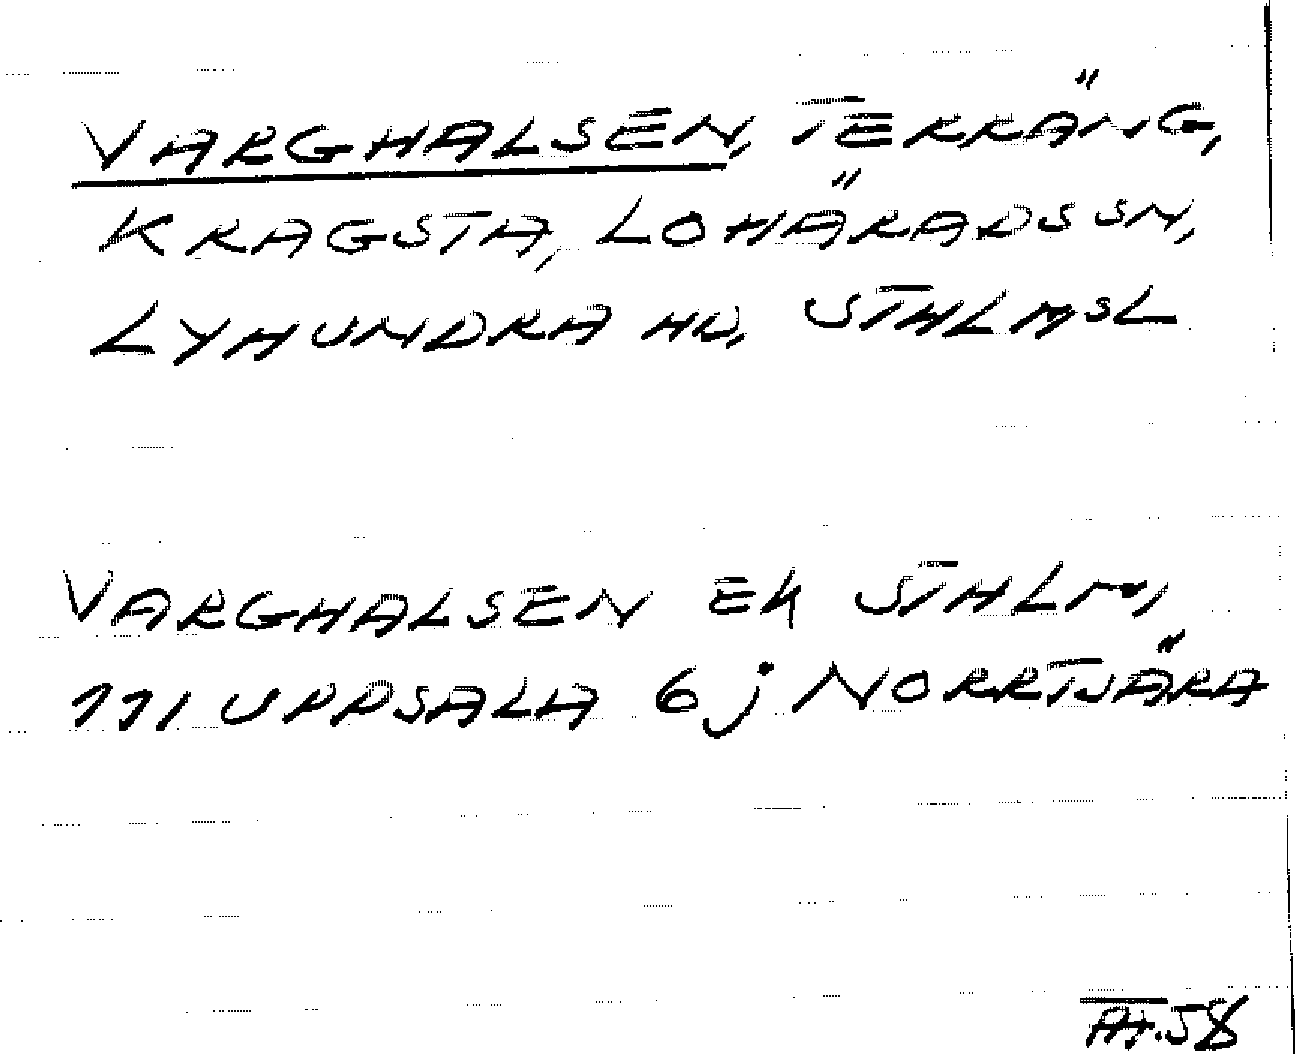 VARGHALSEN, TERRÄNG,
KRAGSTA, LOHÄRADS SN,
LYHUNDRA HD, STHLMSL
VARGHALSEN EK STHLM,
111 UPPSALA 6j NORRTJÄRA